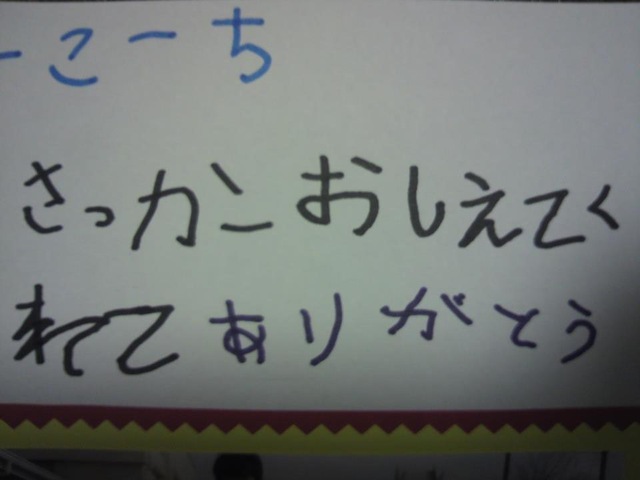 ーこーち
さっカーおしえてく
れてありがとう